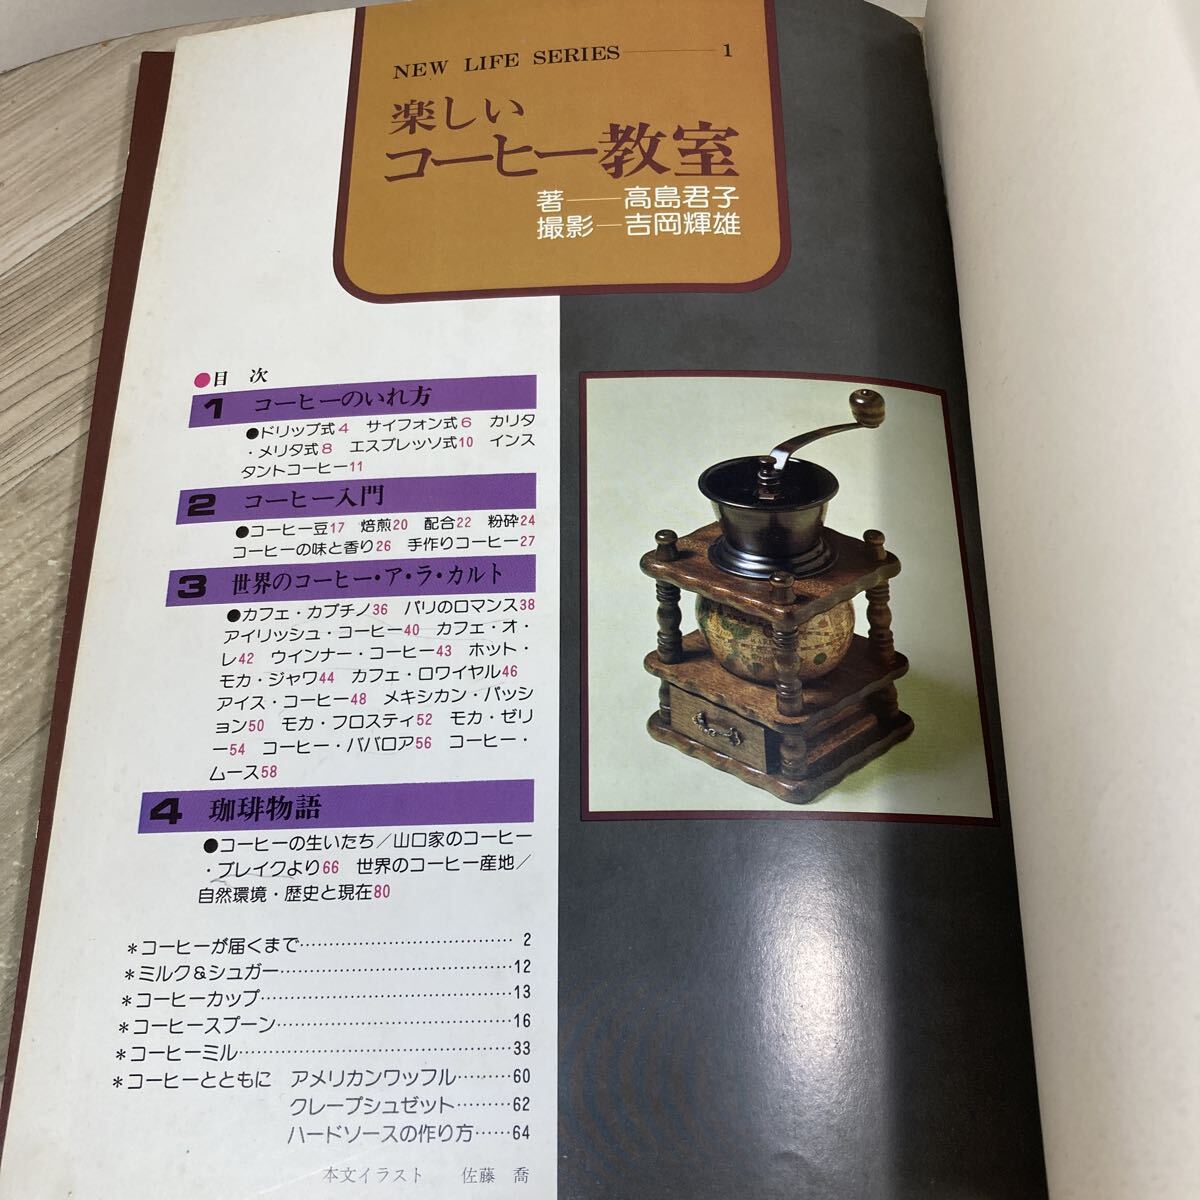 NEW LIFE SERIES――1
楽しい
コーヒー教室
著――高島君子
撮影―吉岡輝雄
●目 次
1 コーヒーのいれ方
●ドリップ式4 サイフォン式6 カリタ
・メリタ式8 エスプレッソ式10 インス
タントコーヒー11
2 コーヒー入門
●コーヒー豆17 焙煎20 配合22 粉砕24
コーヒーの味と香り26 手作りコーヒー27
3 世界のコーヒー・ア・ラ・カルト
●カフェ・カプチノ36 パリのロマンス38
アイリッシュ・コーヒー40 カフェ・オ・
レ42 ウインナー・コーヒー43 ホット・
モカ・ジャワ44 カフェ・ロワイヤル46
アイス・コーヒー48 メキシカン・パッシ
ョン50 モカ・フロスティ52 モカ・ゼリ
ー54 コーヒー・ババロア56 コーヒー・
ムース58
4 珈琲物語
●コーヒーの生いたち/山口家のコーヒー
・ブレイクより66 世界のコーヒー産地/
自然環境・歴史と現在80
*コーヒーが届くまで……………………………… 2
*ミルク&シュガー…………………………………12
*コーヒーカップ……………………………………13
*コーヒースプーン…………………………………16
*コーヒーミル………………………………………33
*コーヒーとともに アメリカンワッフル………60
クレープシュゼット………62
ハードソースの作り方……64
本文イラスト 佐藤 喬